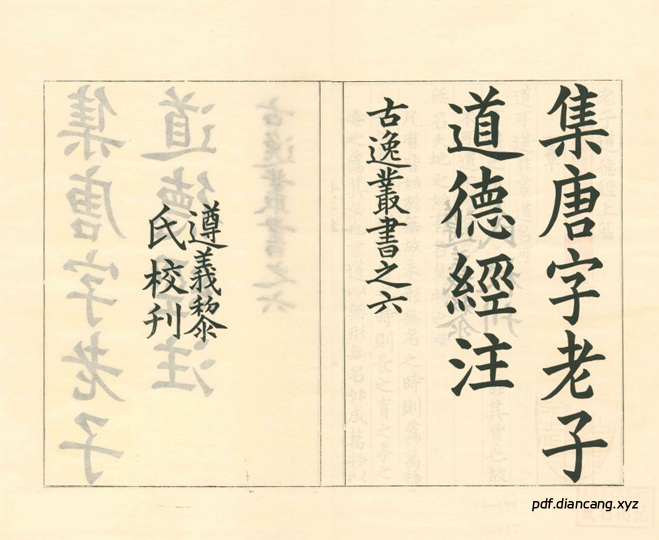 集唐字老子
道德經注
古逸叢書之六
遵義黎
氏校刊
pdf.diancang.xyz